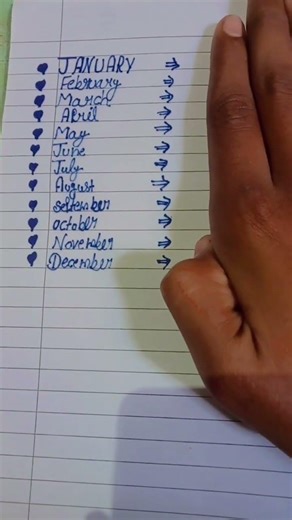 JANUARY ⇒
February ⇒
March ⇒
April ⇒
May ⇒
June ⇒
July ⇒
August ⇒
september ⇒
october ⇒
November ⇒
December ⇒